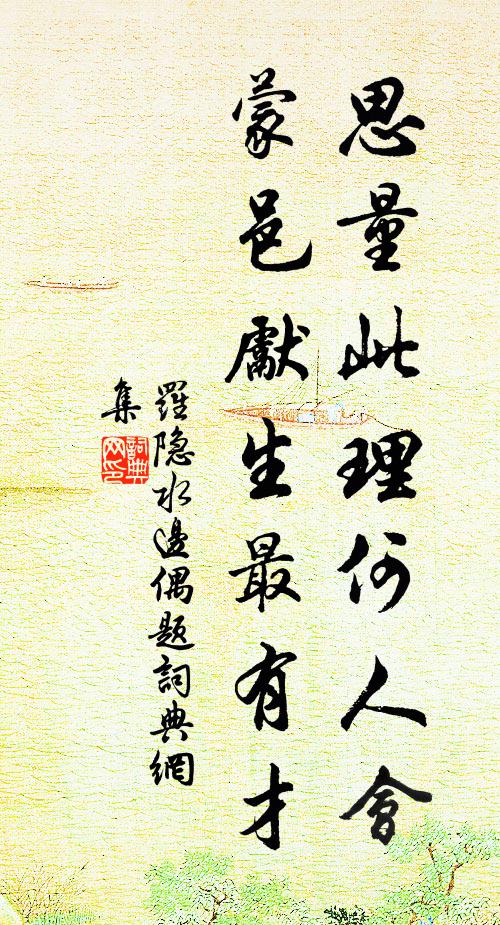 思量此理何人會
蒙邑獻生最有才
羅隐水邊偶題詞典網
集
詞典
网印